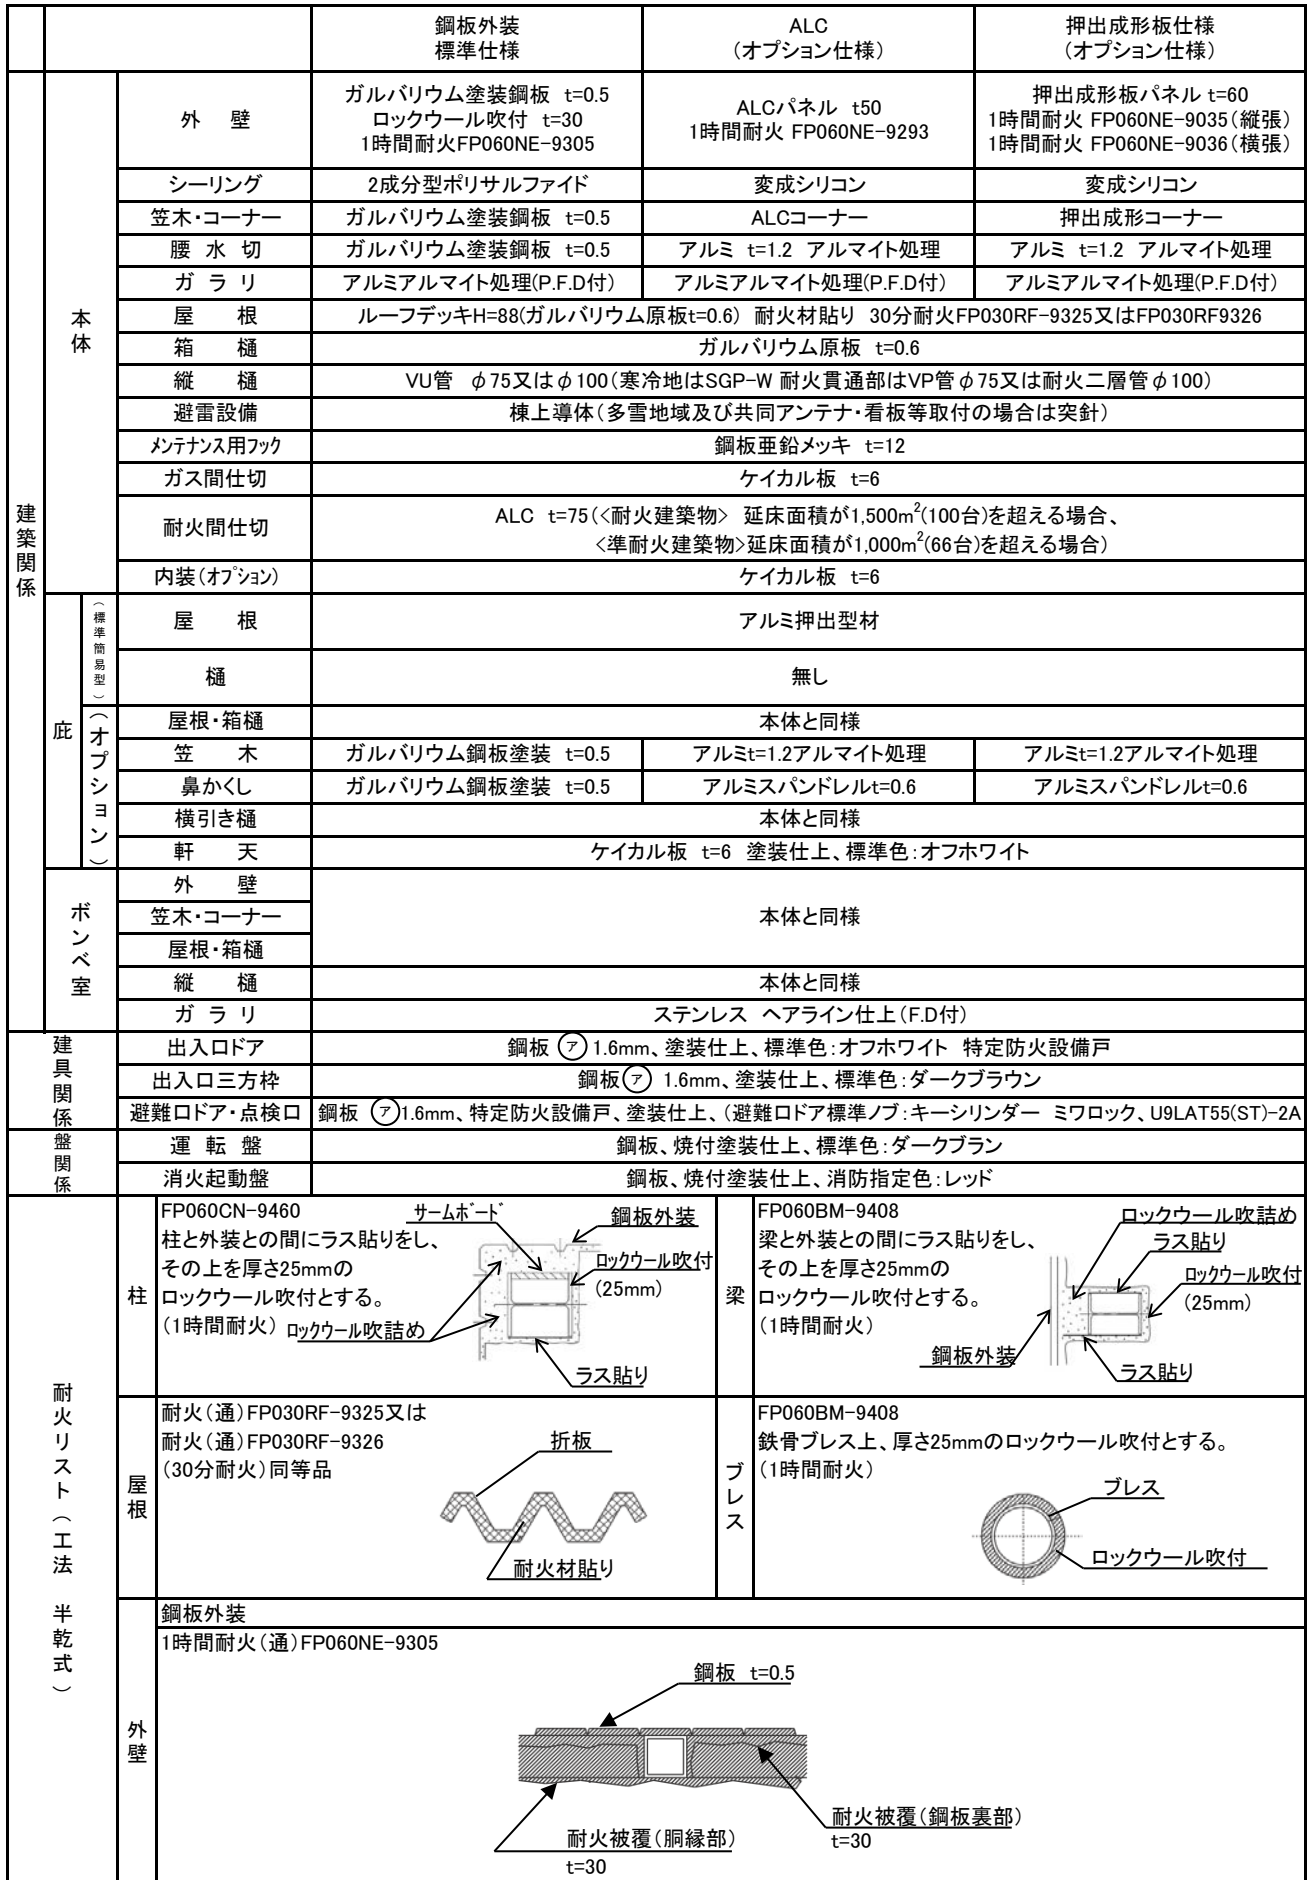 鋼板外装
標準仕様
ALC
（オプション仕様）
押出成形板仕様
（オプション仕様）
建築関係
本体
外　壁
ガルバリウム塗装鋼板 t=0.5
ロックウール吹付 t=30
1時間耐火FP060NE-9305
ALCパネル t50
1時間耐火 FP060NE-9293
押出成形板パネル t=60
1時間耐火 FP060NE-9035（縦張）
1時間耐火 FP060NE-9036（横張）
シーリング
2成分型ポリサルファイド
変成シリコン
変成シリコン
笠木・コーナー
ガルバリウム塗装鋼板 t=0.5
ALCコーナー
押出成形コーナー
腰 水 切
ガルバリウム塗装鋼板 t=0.5
アルミ t=1.2 アルマイト処理
アルミ t=1.2 アルマイト処理
ガ ラ リ
アルミアルマイト処理(P.F.D付)
アルミアルマイト処理(P.F.D付)
アルミアルマイト処理(P.F.D付)
屋　根
ルーフデッキH=88(ガルバリウム原板t=0.6) 耐火材貼り 30分耐火FP030RF-9325又はFP030RF9326
箱　樋
ガルバリウム原板 t=0.6
縦　樋
VU管 φ75又はφ100（寒冷地はSGP-W 耐火貫通部はVP管φ75又は耐火二層管φ100）
避雷設備
棟上導体（多雪地域及び共同アンテナ・看板等取付の場合は突針）
メンテナンス用フック
鋼板亜鉛メッキ t=12
ガス間仕切
ケイカル板 t=6
耐火間仕切
ALC t=75（<耐火建築物> 延床面積が1,500m2(100台)を超える場合、
<準耐火建築物>延床面積が1,000m2(66台)を超える場合）
内装（オプション）
ケイカル板 t=6
庇
（標準簡易型）
屋　根
アルミ押出型材
樋
無し
（オプション）
屋根・箱樋
本体と同様
笠　木
ガルバリウム鋼板塗装 t=0.5
アルミt=1.2アルマイト処理
アルミt=1.2アルマイト処理
鼻かくし
ガルバリウム鋼板塗装 t=0.5
アルミスパンドレルt=0.6
アルミスパンドレルt=0.6
横引き樋
本体と同様
軒　天
ケイカル板 t=6 塗装仕上、標準色：オフホワイト
ボンベ室
外　壁
笠木・コーナー
屋根・箱樋
本体と同様
縦　樋
本体と同様
ガ ラ リ
ステンレス ヘアライン仕上（F.D付）
建具関係
出入口ドア
鋼板 ㋐1.6mm、塗装仕上、標準色：オフホワイト 特定防火設備戸
出入口三方枠
鋼板㋐ 1.6mm、塗装仕上、標準色：ダークブラウン
避難口ドア・点検口
鋼板 ㋐1.6mm、特定防火設備戸、塗装仕上、（避難口ドア標準ノブ：キーシリンダー ミワロック、U9LAT55(ST)-2A
盤関係
運 転 盤
鋼板、焼付塗装仕上、標準色：ダークブラン
消火起動盤
鋼板、焼付塗装仕上、消防指定色：レッド
耐火リスト（工法　半乾式）
柱
FP060CN-9460
柱と外装との間にラス貼りをし、
その上を厚さ25mmの
ロックウール吹付とする。
（1時間耐火）
サームボード
鋼板外装
ロックウール吹付
(25mm)
ロックウール吹詰め
ラス貼り
梁
FP060BM-9408
梁と外装との間にラス貼りをし、
その上を厚さ25mmの
ロックウール吹付とする。
（1時間耐火）
ロックウール吹詰め
ラス貼り
ロックウール吹付
(25mm)
鋼板外装
ラス貼り
屋根
耐火（通）FP030RF-9325又は
耐火（通）FP030RF-9326
（30分耐火）同等品
折板
耐火材貼り
ブレス
FP060BM-9408
鉄骨ブレス上、厚さ25mmのロックウール吹付とする。
（1時間耐火）
ブレス
ロックウール吹付
外壁
鋼板外装
1時間耐火（通）FP060NE-9305
鋼板 t=0.5
耐火被覆（鋼板裏部）
t=30
耐火被覆（胴縁部）
t=30